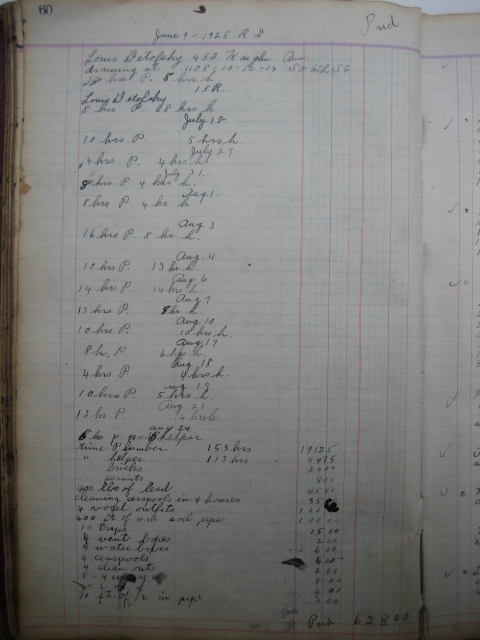 60
June 9 - 1925 R S
Paid
Louis Detofsky 452 Vaughn Ave
draining at 1108-10-12-14 So 6th St
28 hrs P. 8 hrs h
15 R.
Louis Detofsky
8 hrs P. 8 hrs h
July 18
10 hrs P. 5 hrs h.
July 27
4 hrs. P. 4 hrs h
July 31.
8 hrs P 4 hrs h.
Aug 1.
8 hrs P. 4 hr. h.
Aug 3
16 hrs P. 8 hr. h.
Aug. 4
10 hrs P. 13 hr h
Aug 6
14 hrs P 14 hrs h.
Aug 7
13 hrs P. 8 hr. h.
Aug 10
10 hrs P. 10 hrs h.
Aug 17
8 hr. P 6 hrs h.
Aug 18
4 hrs P. 4 hrs h.
Aug 19
10 hrs P. 5 hrs h.
Aug 21
12 hr. P. 4 hrs h
Aug 24
helper
time Plumber 153 hrs 191 25
" helper 113 hrs
bricks
permits 8 00
400 lbs of lead 45 00
cleaning cesspools in 4 houses
4 outfits
400 ft of soil pipe 100 00
10 traps 15 00
4 vent
4 water
4 cesspools 4 00
4 clean outs
10 ft. of 1/2 in pipe
Paid 628 00